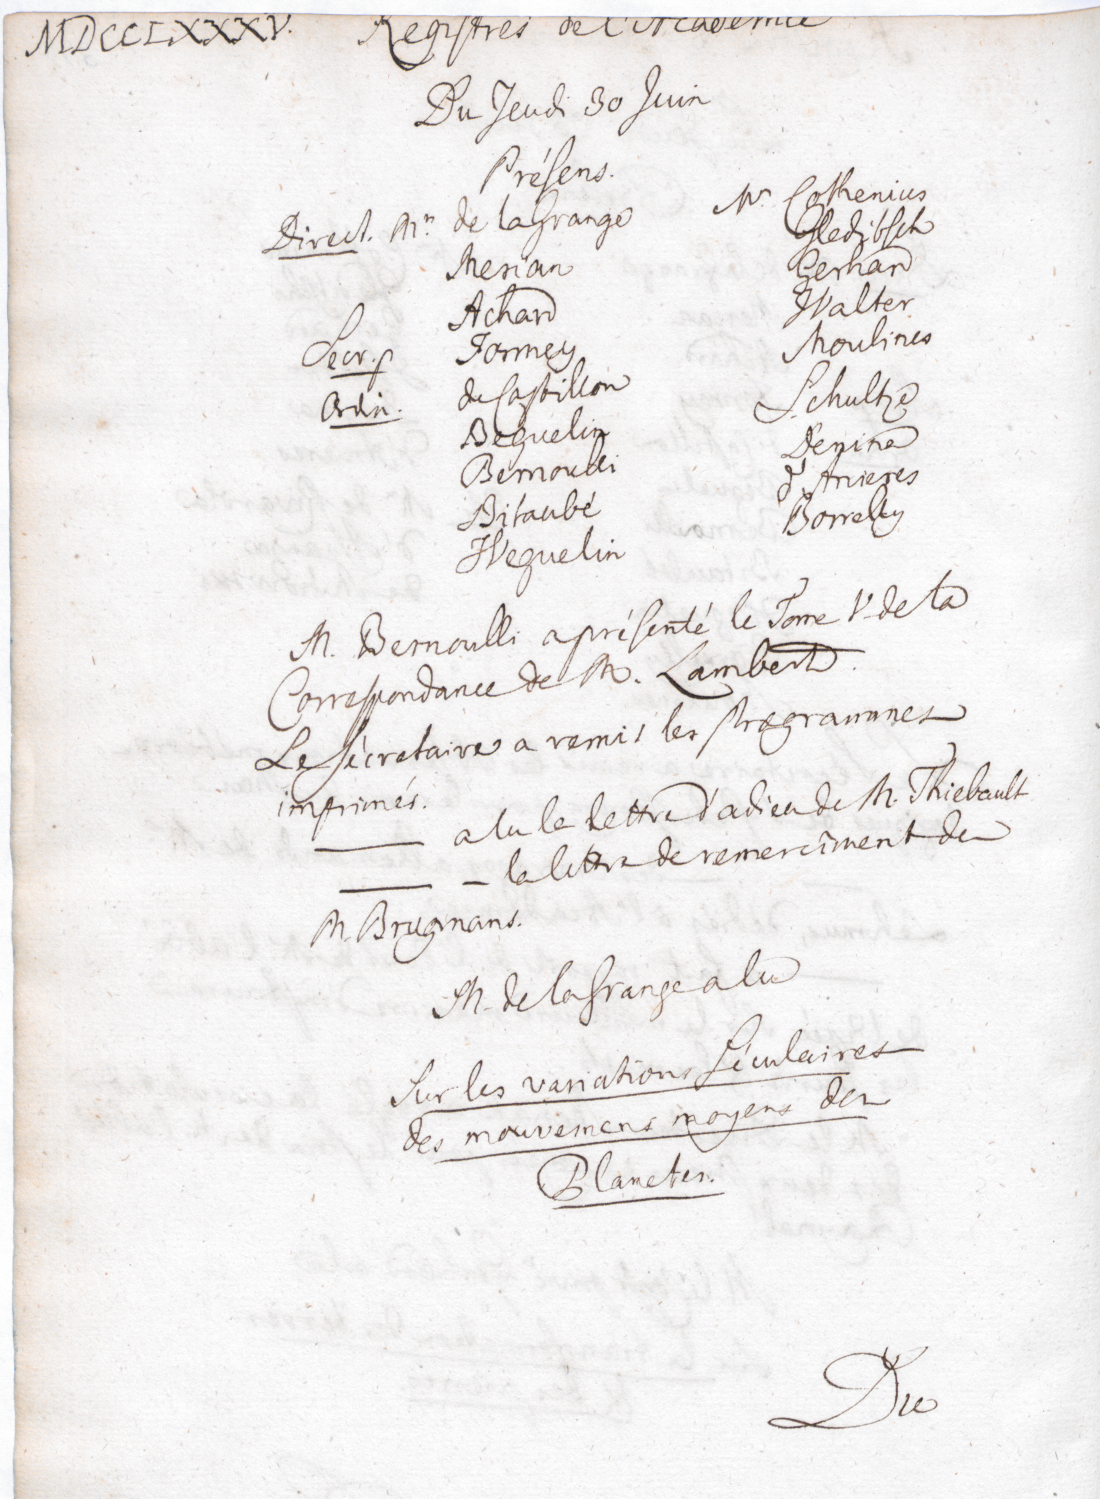 MDCCLXXXV. Registres de l'Academie
Du Jeudi 30 Juin
Présens.
Direct. Mrs de la Grange
Merian
Achard
Secr. p. Formey
Ordin. de Castillon
Beguelin
Bernoulli
Bitaubé
Weguelin
Mrs Cothenius
Gleditsch
Gerhard
Walter
Moulines
Schultze
Denina
d'Anieres
Borrelly
M. Bernoulli a présenté le Tome V. de la
Correspondance de M. Lambert.
Le Sécretaire a remis les Programmes
imprimés.
— a lu la lettre d'adieu de M. Thiebault
— – la lettre de remercîment de
M. Brugmans.
M. de la Grange a lu
Sur les variations Séculaires
des mouvemens moyens des
Planetes.
Du